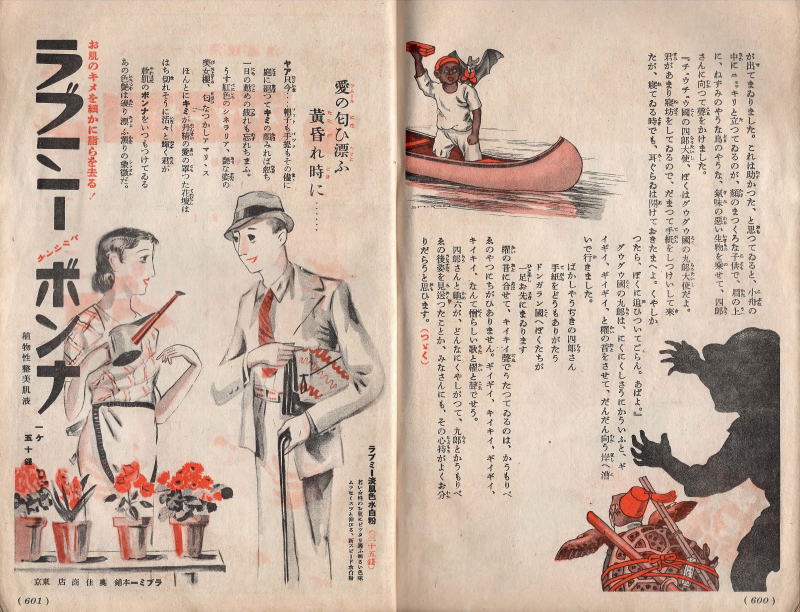 が出てまゐりました。これは助かつた、と思つてゐると、小舟の
中にニョッキリと立つてゐるのが、顔のまつくろな子供で、肩の上
に、ねずみのやうな鳥のやうな、氣味の悪い生物を乗せて、四郎
さんに向つて聲をかけました。
『チュウチュウ國の四郎大使、ぼくはグウグウ國の九郎大使だよ。
君があまり寝坊をしてゐるので、だまつて手紙をしつけいして來
たが、寝てゐる時でも、耳ぐらゐは開けておきたまへよ。くやしか
つたら、ぼくに追ひついてごらん。あばよ。』
グウグウ國の九郎は、にくにくしさうにかういふと、ギ
イギイ、ギイギイ、と櫂の音をさせて、だんだん向う岸へ漕
いで行きました。
ばかしやうぢきの四郎さん
手紙をどうもありがたう
一足お先にまゐります
ドンガラン國へぼくたちが
櫂の音に合せて、キイキイ聲でうたつてゐるのは、かうもりべ
ゑのやつにちがひありません。ギイギイ、キイキイ、ギイギイ、
キイキイ、なんて憎らしい歌と櫂と聲でせう。
四郎さんと鯛六が、どんなにくやしがつて、九郎とかうもりべ
ゑの後姿を見送つたことか、みなさんにも、その心持がよくお分
りだらうと思ひます。(つゞく)
(600)
愛の匂ひ漂ふ
黄昏れ時に……
ヤア只今…帽子も手提もその儘に
庭に廻つてキミの顔みれば忽ち
一日の勤めの疲れも忘れちまふ。
うす紅色のシネラリア、艶な姿の
美女櫻、匂なつかしアマリ・ス
ほんとにキミが丹精の愛の罩つた花壇は
はち切れそうに活々と輝く君が
軟肌のボンナをいつもつけてゐる
あの色艶は漫ろ漂ふ薫りの象徴だ。
お肌のキメを細かに脂らを去る!
ラブミー ボンナ
バミシンザン
植物性整美肌液
一ケ 五十錢
ラブミー淡肌色水白粉(三十五錢)
東京 店商佳奥 舗本ーミブラ
(601)